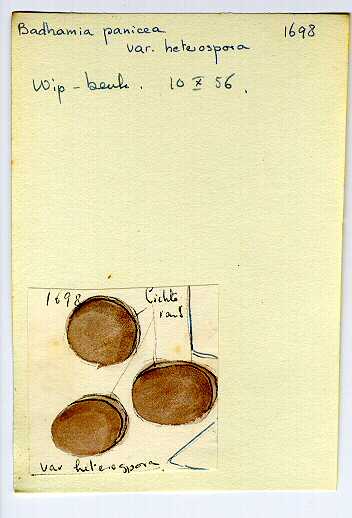 Badhamia panicea 1698
var. heterospora
Wip - beuk. 10 X 56.
1698 lichte
rand
var heterospora.